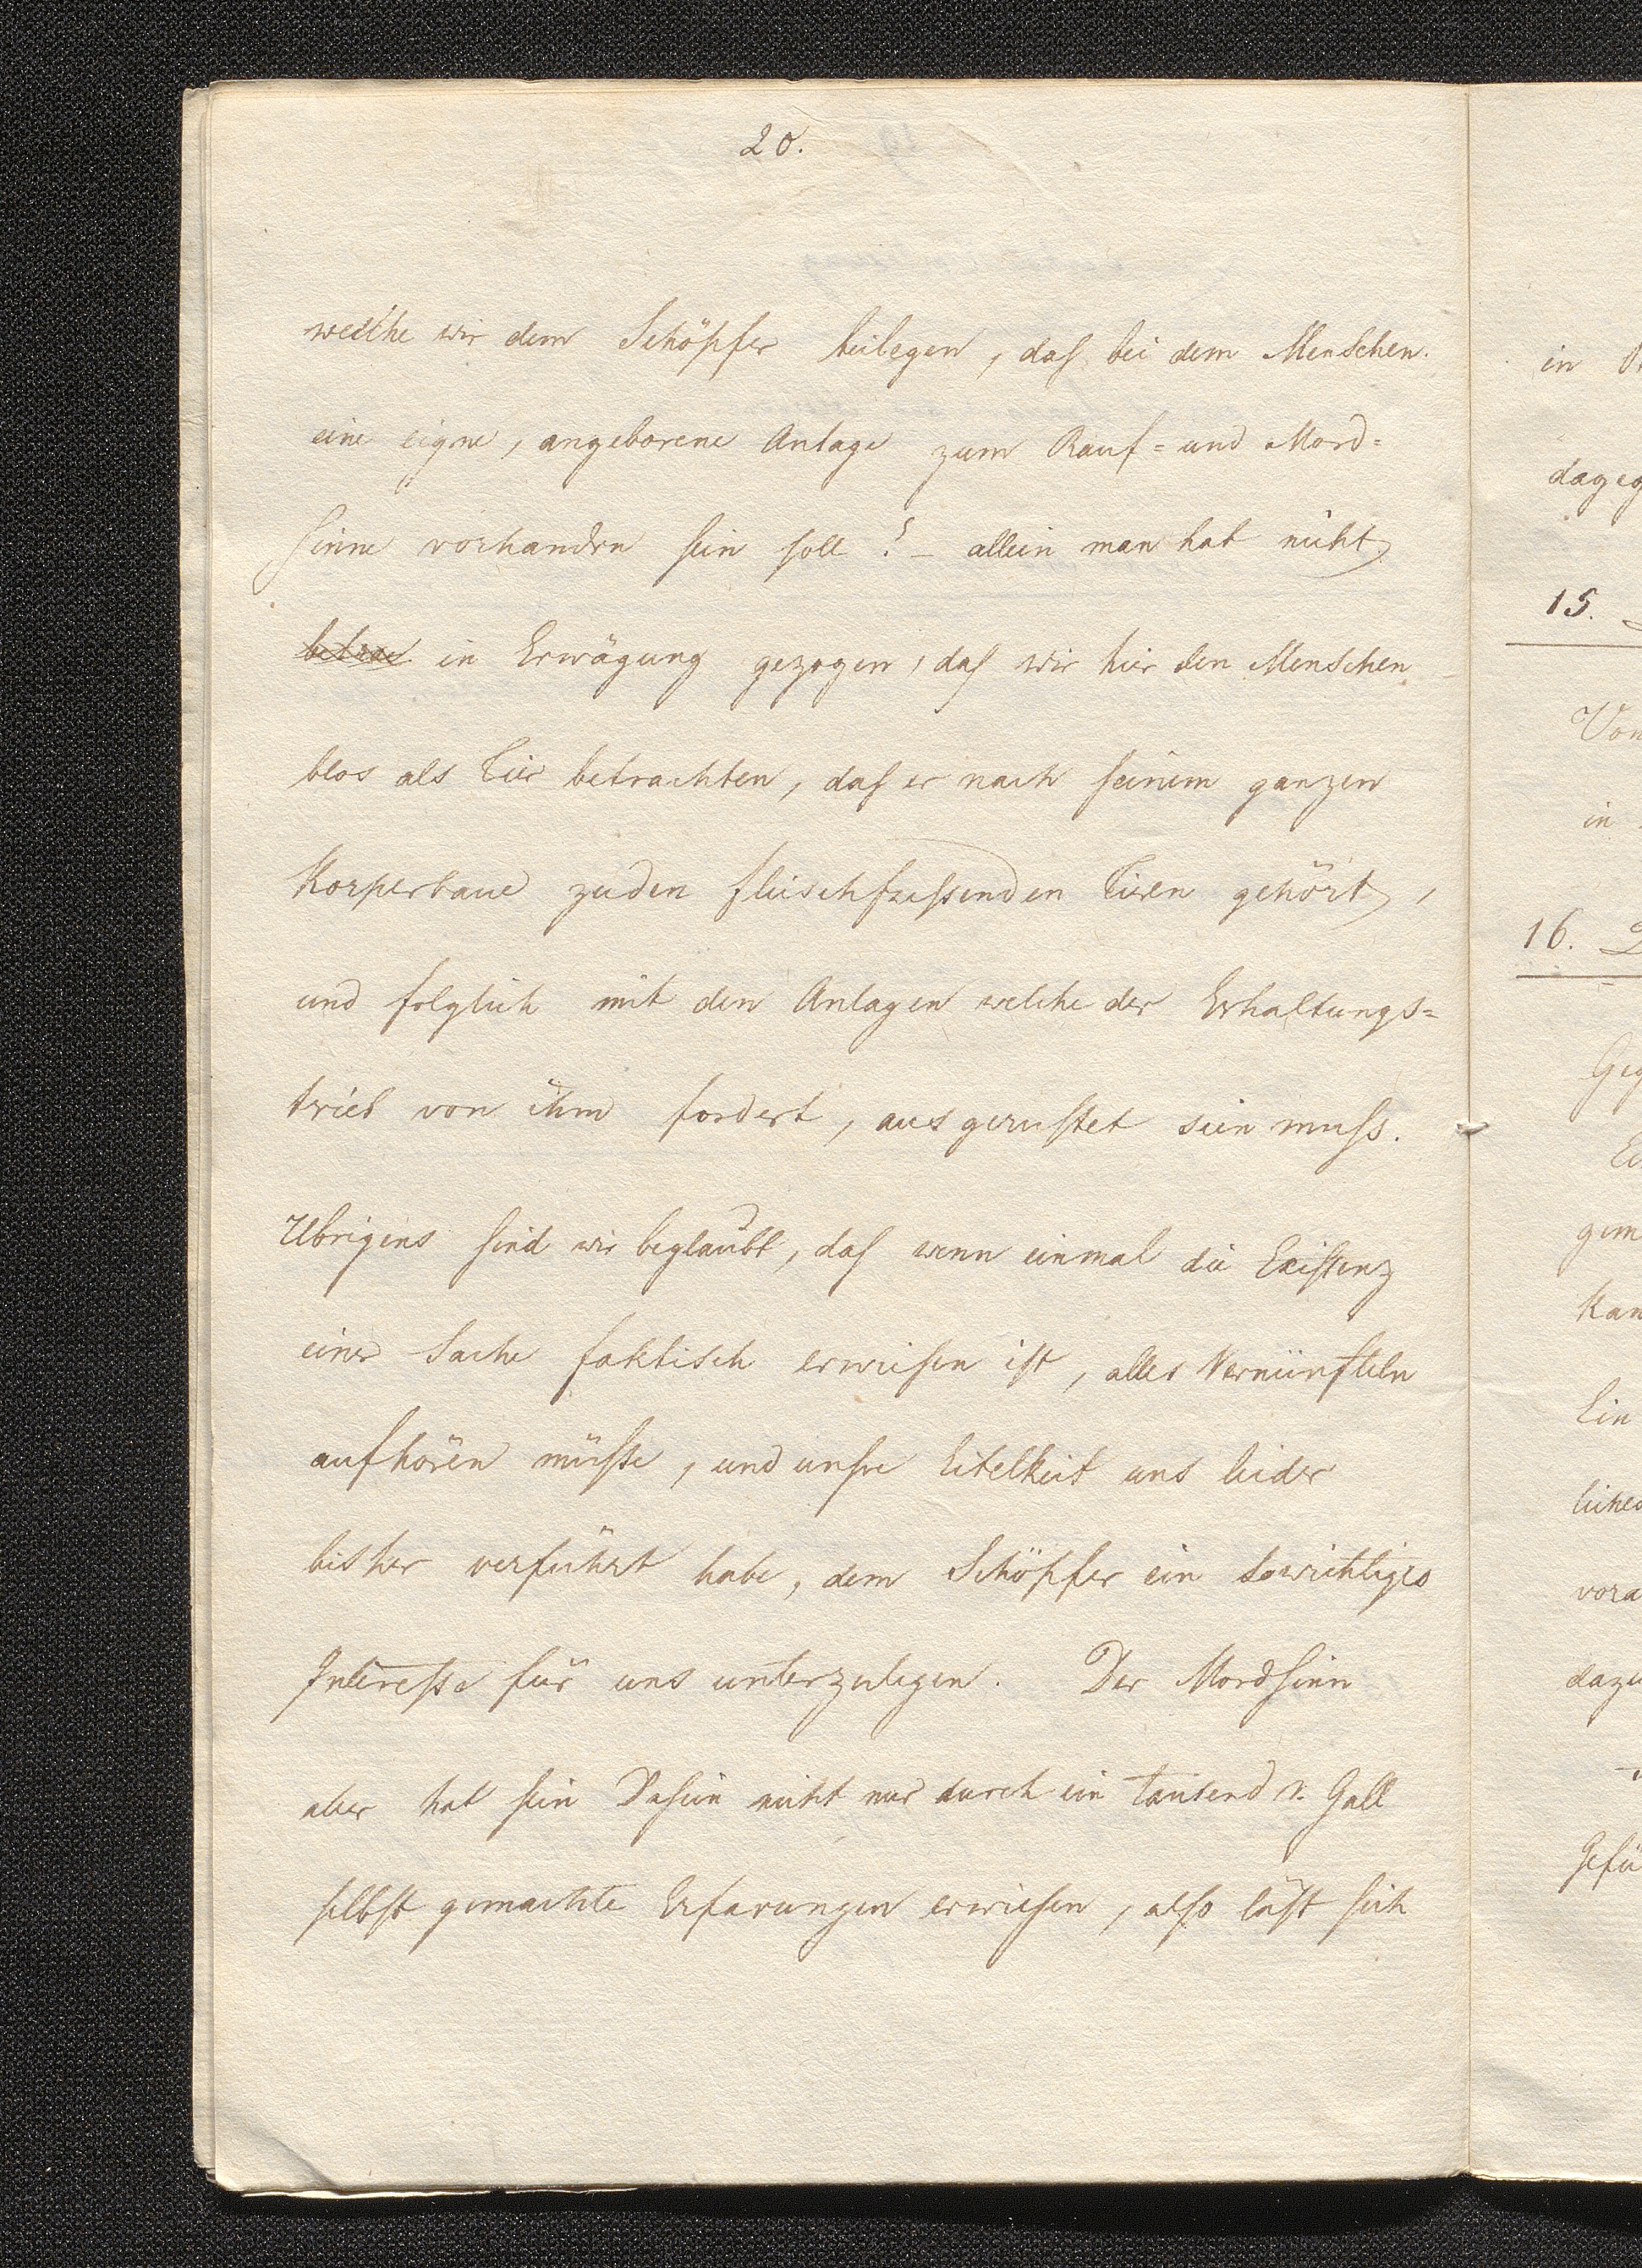 20.
welche wir dem Schöpfer beilegen, daß bei dem Menschen
eine eigne, angeborene Anlage zum Rauf= und Mord=
sinne vorhanden sein soll? – allein man hat nicht
in Erwägung gezogen, daß wir hier den Menschen
blos als Tier betrachten, daß er nach seinem ganzen
Korperbaue zu den fleischfressenden Tieren gehört,
und folglich mit den Anlagen welche der Erhaltungs=
trieb von ihm fordert, ausgerustet sein muß.
Ubrigens sind wir beglaubt, daß wenn einmal die Existenz
einer Sache faktisch erwiesen ist, alles Vernünfteln
aufhören müsste, und unsre Eitelkeit uns leider
bisher verführt habe, dem Schöpfer ein so wichtiges
Interesse für uns unterzulegen. Der Mordsinn
aber hat sein Dasein nicht nur durch ein tausend v. Gall
selbst gemachte Erfarungen erwiesen, also läst sich
in
dageg
15.
Von
in
16.
Geg
gem
kan
Ein
liches
vora
dazu
Gefü